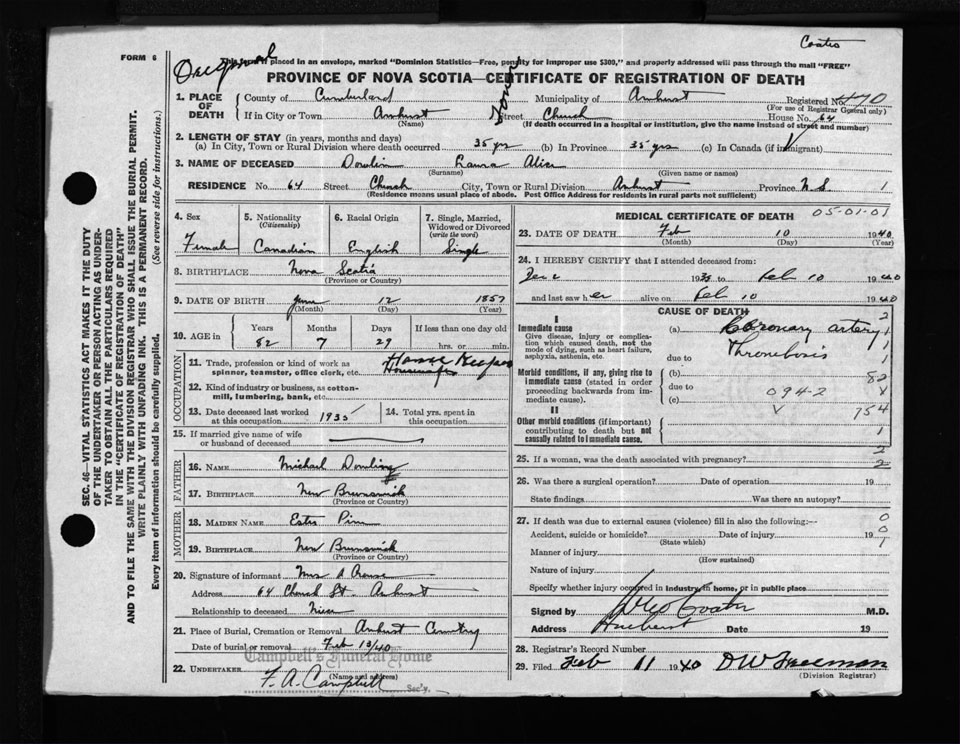 Coates
FORM 6
Original
This form if placed in an envelope, marked "Dominion Statistics—Free, penalty for improper use $300," and properly addressed will pass through the mail "FREE"
PROVINCE OF NOVA SCOTIA—CERTIFICATE OF REGISTRATION OF DEATH
1. PLACE OF DEATH
County of Cumberland Municipality of Amherst Registered No. 470
(For use of Registrar General only)
If in City or Town Amherst Street Church House No. 64
(Name) (If death occurred in a hospital or institution, give the name instead of street and number)
Town
2. LENGTH OF STAY (in years, months and days)
(a) In City, Town or Rural Division where death occurred 35 yrs (b) In Province 35 yrs (c) In Canada (if immigrant)
3. NAME OF DECEASED Dowlin Laura Alice
(Surname) (Given name or names)
RESIDENCE No. 64 Street Church City, Town or Rural Division Amherst Province N.S. 1
(Residence means usual place of abode. Post Office Address for residents in rural parts not sufficient)
4. Sex Female
5. Nationality (Citizenship) Canadian
6. Racial Origin English
7. Single, Married, Widowed or Divorced (write the word) Single
8. BIRTHPLACE Nova Scotia
(Province or Country)
9. DATE OF BIRTH June 12 1857
(Month) (Day) (Year)
10. AGE in Years Months Days If less than one day old
82 7 29 hrs. or min.
OCCUPATION
11. Trade, profession or kind of work as spinner, teamster, office clerk, etc. House Keeper
Housewife
12. Kind of industry or business, as cotton-mill, lumbering, bank, etc.
13. Date deceased last worked at this occupation 1935
14. Total yrs. spent in this occupation
15. If married give name of wife or husband of deceased
FATHER
16. NAME Michael Dowling
17. BIRTHPLACE New Brunswick
(Province or Country)
MOTHER
18. MAIDEN NAME
19. BIRTHPLACE New Brunswick
(Province or Country)
20. Signature of informant Mrs A
Address 64 Church St. Amherst
Relationship to deceased Niece
21. Place of Burial, Cremation or Removal Amherst Cemetery
Date of burial or removal Feb 13/40
Campbell's Funeral Home
22. UNDERTAKER F. A. Campbell
(Name and address)
Sec'y.
MEDICAL CERTIFICATE OF DEATH 05-01-01
23. DATE OF DEATH Feb 10 1940
(Month) (Day) (Year)
24. I HEREBY CERTIFY that I attended deceased from:
Dec 2 1938 to Feb 10 1940
and last saw her alive on Feb 10 1940
CAUSE OF DEATH
I
Immediate cause
Give disease, injury or complication which caused death, not the mode of dying, such as heart failure, asphyxia, asthenia, etc.
(a) Coronary artery
due to Thrombosis
Morbid conditions, if any, giving rise to immediate cause (stated in order proceeding backwards from immediate cause).
(b)
due to 094-2
(c)
II
Other morbid conditions (if important) contributing to death but not causally related to immediate cause.
2
1
1
82
V
V 754
1
2
25. If a woman, was the death associated with pregnancy? 2
26. Was there a surgical operation? Date of operation 19
State findings Was there an autopsy?
27. If death was due to external causes (violence) fill in also the following:— 0
Accident, suicide or homicide? Date of injury 19 0
(State which) 1
Manner of injury
(How sustained)
Nature of injury
Specify whether injury occurred in industry, in home, or in public place
Signed by Coates M.D.
Address Amherst Date 19
28. Registrar's Record Number
29. Filed Feb 11 1940 D W Freeman
(Division Registrar)
SEC. 46—VITAL STATISTICS ACT MAKES IT THE DUTY
OF THE UNDERTAKER OR PERSON ACTING AS UNDER-
TAKER TO OBTAIN ALL THE PARTICULARS REQUIRED
IN THE "CERTIFICATE OF REGISTRATION OF DEATH"
AND TO FILE THE SAME WITH THE DIVISION REGISTRAR WHO SHALL ISSUE THE BURIAL PERMIT.
WRITE PLAINLY WITH UNFADING INK. THIS IS A PERMANENT RECORD.
Every item of information should be carefully supplied. (See reverse side for instructions.)